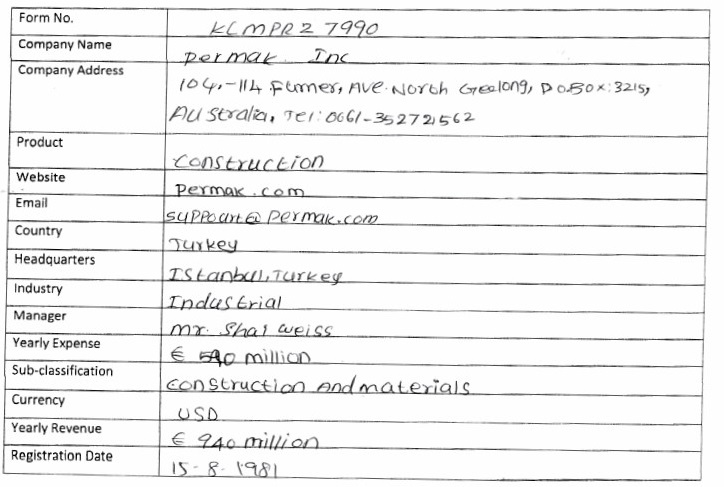 Form No. KLMPR2 7990
Company Name Permak Inc
Company Address 104,-114 Furner, Ave. North Geelong, P.O.Box:3215,
Australia, Tel: 0661-352721562
Product Construction
Website Permak.com
Email suppoart@Permak.com
Country Turkey
Headquarters Istanbul, Turkey
Industry Industrial
Manager Mr. Shai Weiss
Yearly Expense € 590 million
Sub-classification Construction And materials
Currency USD
Yearly Revenue € 940 million
Registration Date 15-8-1981